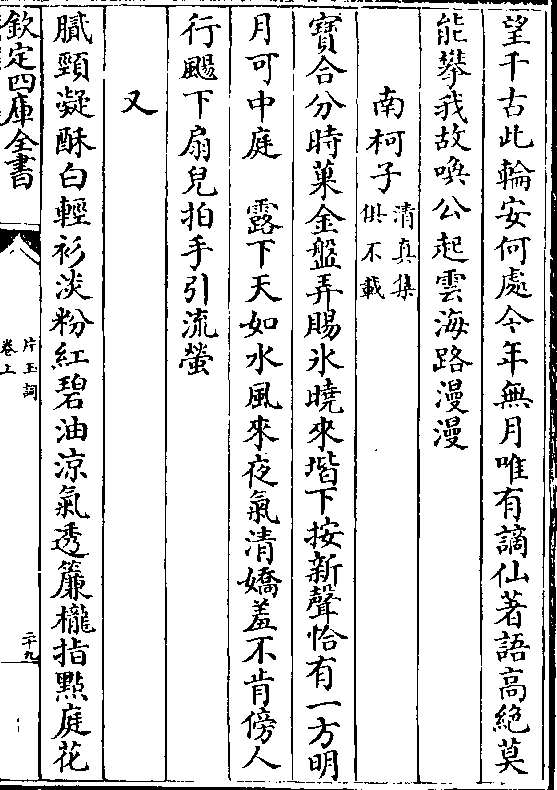 望千古此輪安何處今年無月唯有謫仙著語高絶莫
能攀我故喚公起雲海路漫漫
南柯子 清真集俱不載
寶合分時菓金盤弄賜氷曉來堦下按新聲恰有一方明
月可中庭　露下天如水風來夜氣清嬌羞不肯傍人
行颺下扇兒拍手引流螢
又
膩頸凝酥白輕衫淡粉紅碧油涼氣透簾櫳指點庭花
欽定四庫全書
片玉詞
卷上
二十九